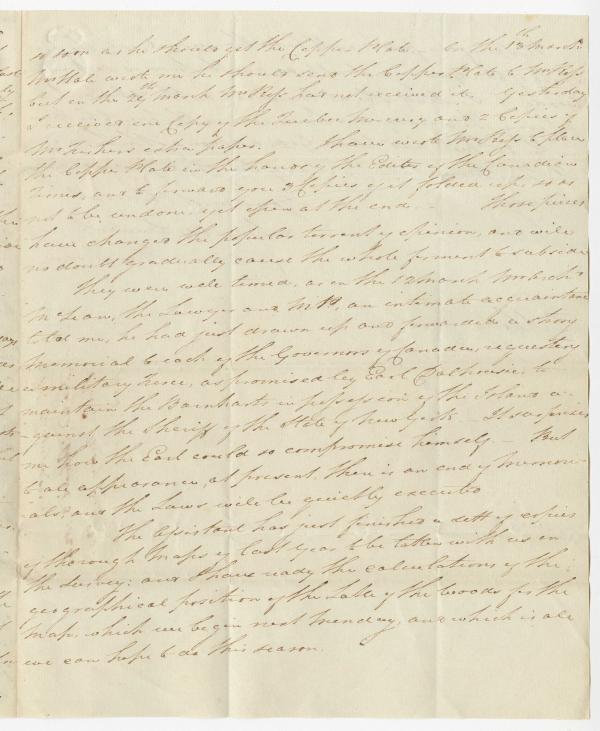 so soon as he should get the Copper Plate – On the 18th March
Mr Hale wrote me he should send the Copper Plate to Mr Ross
but on the 29th March Mr Ross had not received it. Yesterday
I received one Copy of the Quebec Mercury and 2 Copies of
Mr Fishers extra paper. I have wrote Mr Ross to place
the Copper Plate in the hands of the Editor of the Canadian
Times, and to forward you 2 Copies of it folded up, so as
not to be undone, yet open at the end. – These pieces
have changed the popular torrent of opinion, and will
no doubt gradually cause the whole ferment to subside
They were well timed, as on the 12 March Mr Archd
McLean, the Lawyer and M P, an intimate acquaintance
told me, he had just drawn up and forwarded a strong
Memorial to each of the Governors of Canada, requesting
a military Force, as promised by Earl Dalhousie, to
maintain the Barnharts in possession of the Island a-
gainst the Sheriff of the State of New York – It surprises
me how the Earl could so compromise himself. – But
to all appearance, at present, there is an end of memori-
als, and the Laws will be quietly executed
The Assistant has just finished a sett of copies
of thorough Maps of last Year to be taken with us on
the Survey; and I have ready the calculations of the
geographical position of the Lake of the Woods for the
Map, which we begin next Monday, and which is all
we can hope to do this season.